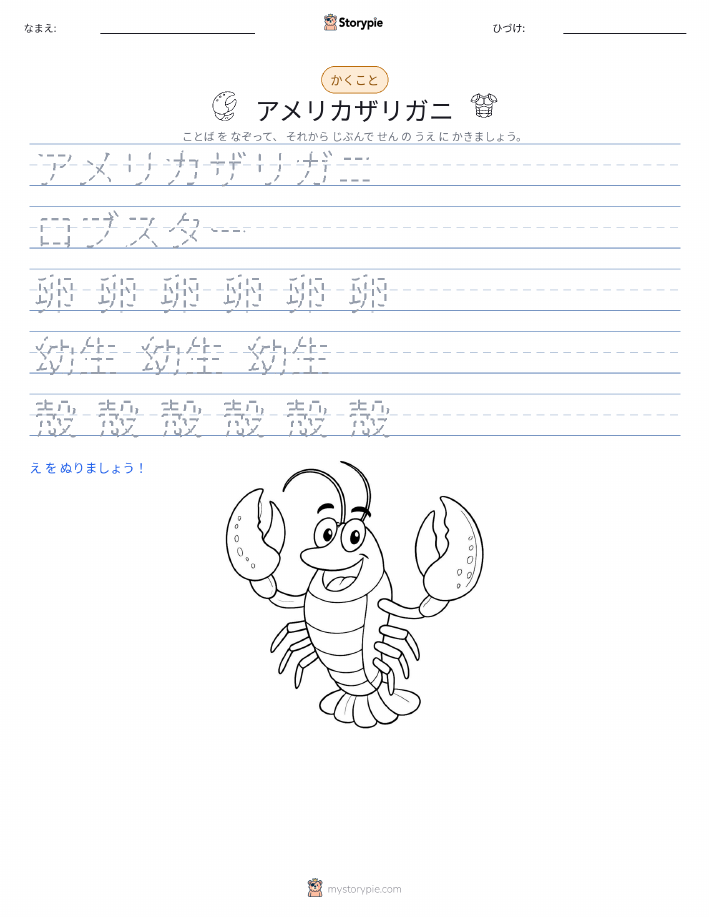 なまえ:
Storypie
ひづけ:
かくこと
アメリカザリガニ
ことば を なぞって、 それから じぶんで せん の うえ に かきましょう。
アメリカザリガニ
ロブスター
卵 卵 卵 卵 卵 卵
幼生 幼生 幼生
殻 殻 殻 殻 殻 殻
え を ぬりましょう！
mystorypie.com